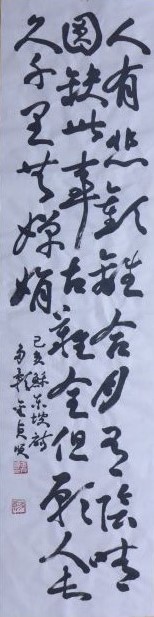 人有悲歡離合月有陰晴
圓缺此事古難全但願人長
久千里共嬋娟
己亥蘇東坡詩